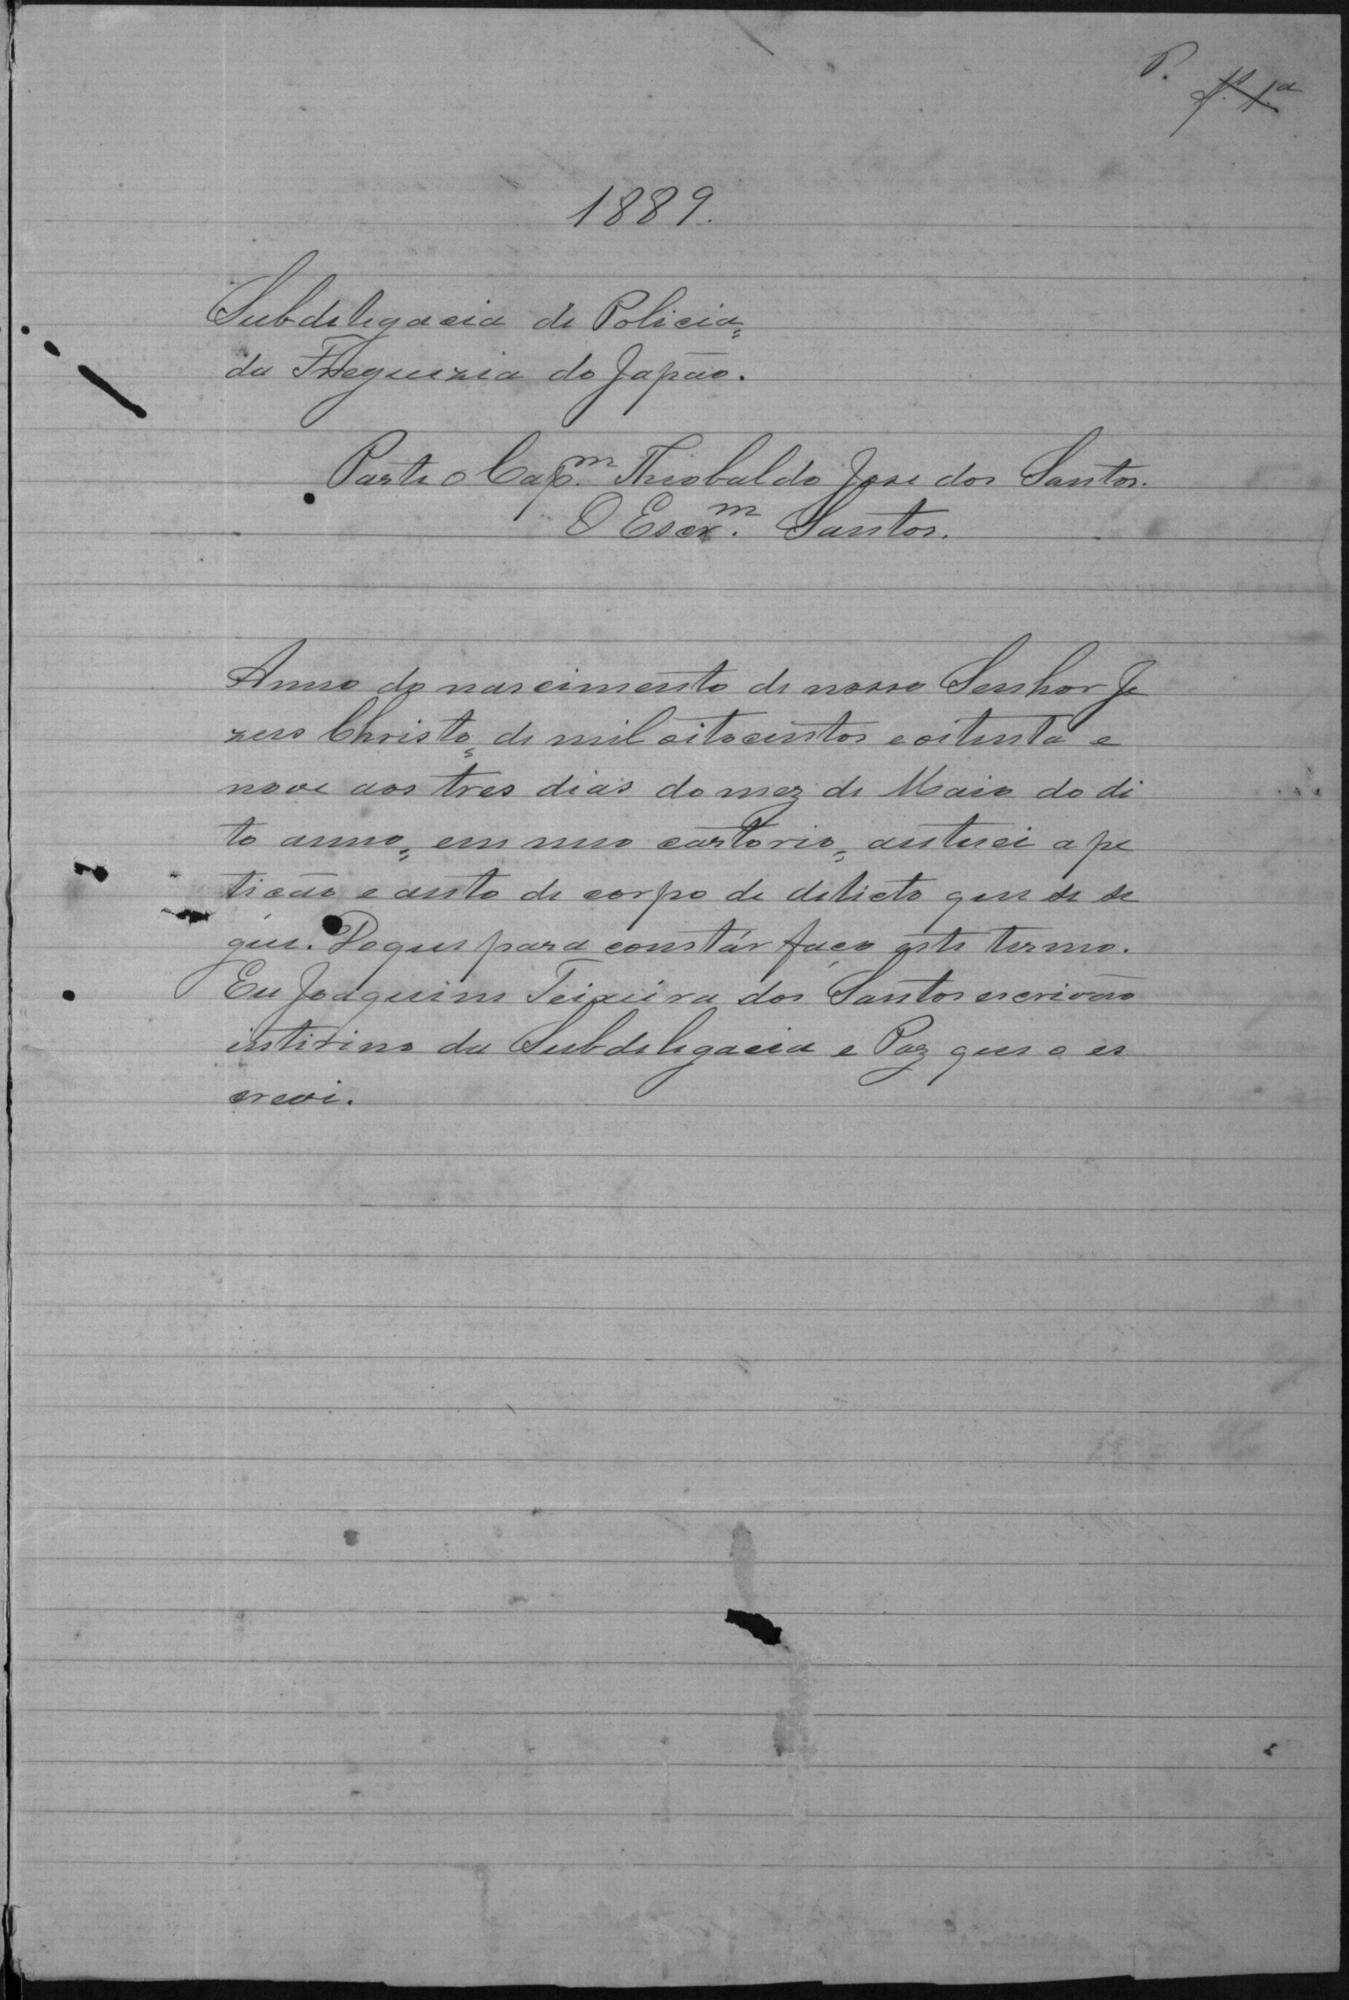 P.
fl. 1.ª
1889.
Subdelegacia de Policia,
da Freguezia do Japão.
Parte o Cap.m Theobaldo Jose dos Santos.
O Escr.m Santos.
Anno do nascimento de nosso Senhor Je
zus Christo, de mil oitocentos e oitenta e
nove aos tres dias do mez de Maio do di
to anno, em meo cartorio, autuei a pe
tição e auto de corpo de delicto que se se
gue. Do que para constár faço este termo.
Eu Joaquim Teixeira dos Santos escrivão
interino da Subdelegacia e Paz que o es
crevi.